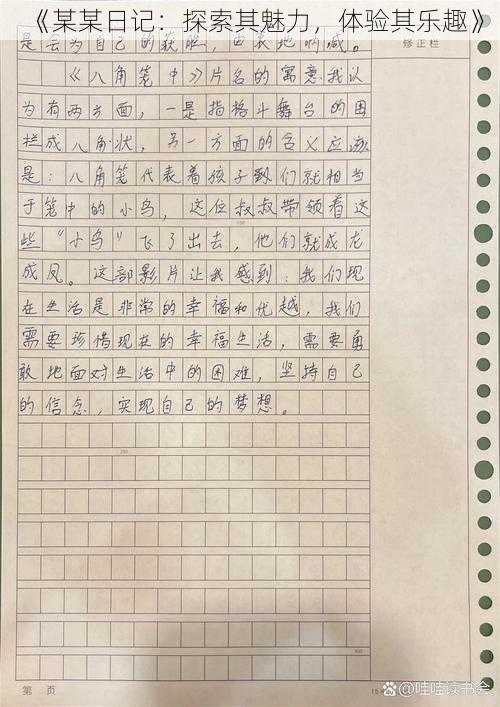 《某某日记：探索其魅力，体验其乐趣》
是会为自己的获胜，由衷地呐喊。
修正栏
《八角笼中》片名的寓意我认
为有两方面，一是指格斗舞台的围
拦成八角状，另一方面的含义应该
是：八角笼代表着孩子们就相当
于笼中的小鸟，这位叔叔带领着这
些“小鸟”飞了出去，他们就成龙
成凤。这部影片让我感到：我们现
在生活是非常的幸福和优越，我们
需要珍惜现在的幸福生活，需要勇
敢地面对生活中的困难，坚持自己
的信念，实现自己的梦想。
第 页
@哇哇读书会